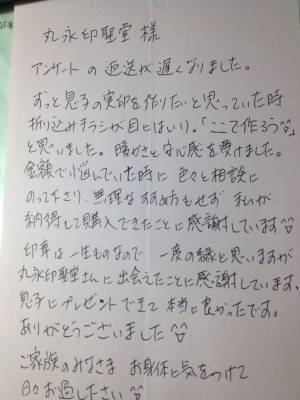 丸永印聖堂 様
アンケートの返送が遅くなりました。
ずっと息子の実印を作りたいと思っていた時
折り込みチラシが目にはいり。「ここで作ろう^^」
と思いました。暖かさと安心感を受けました。
金額で悩んでいた時に 色々と相談に
のって下さり、無理なすすめ方もせず 私が
納得して購入できたことに感謝しています^^
印章は一生ものなので 一度の縁と思いますが
丸永印聖堂さんに出会えたことに感謝しています。
息子にプレゼントできて 本当に良かったです。
ありがとうございました^^
ご家族のみなさま お身体に気をつけて
日々お過しださい^^